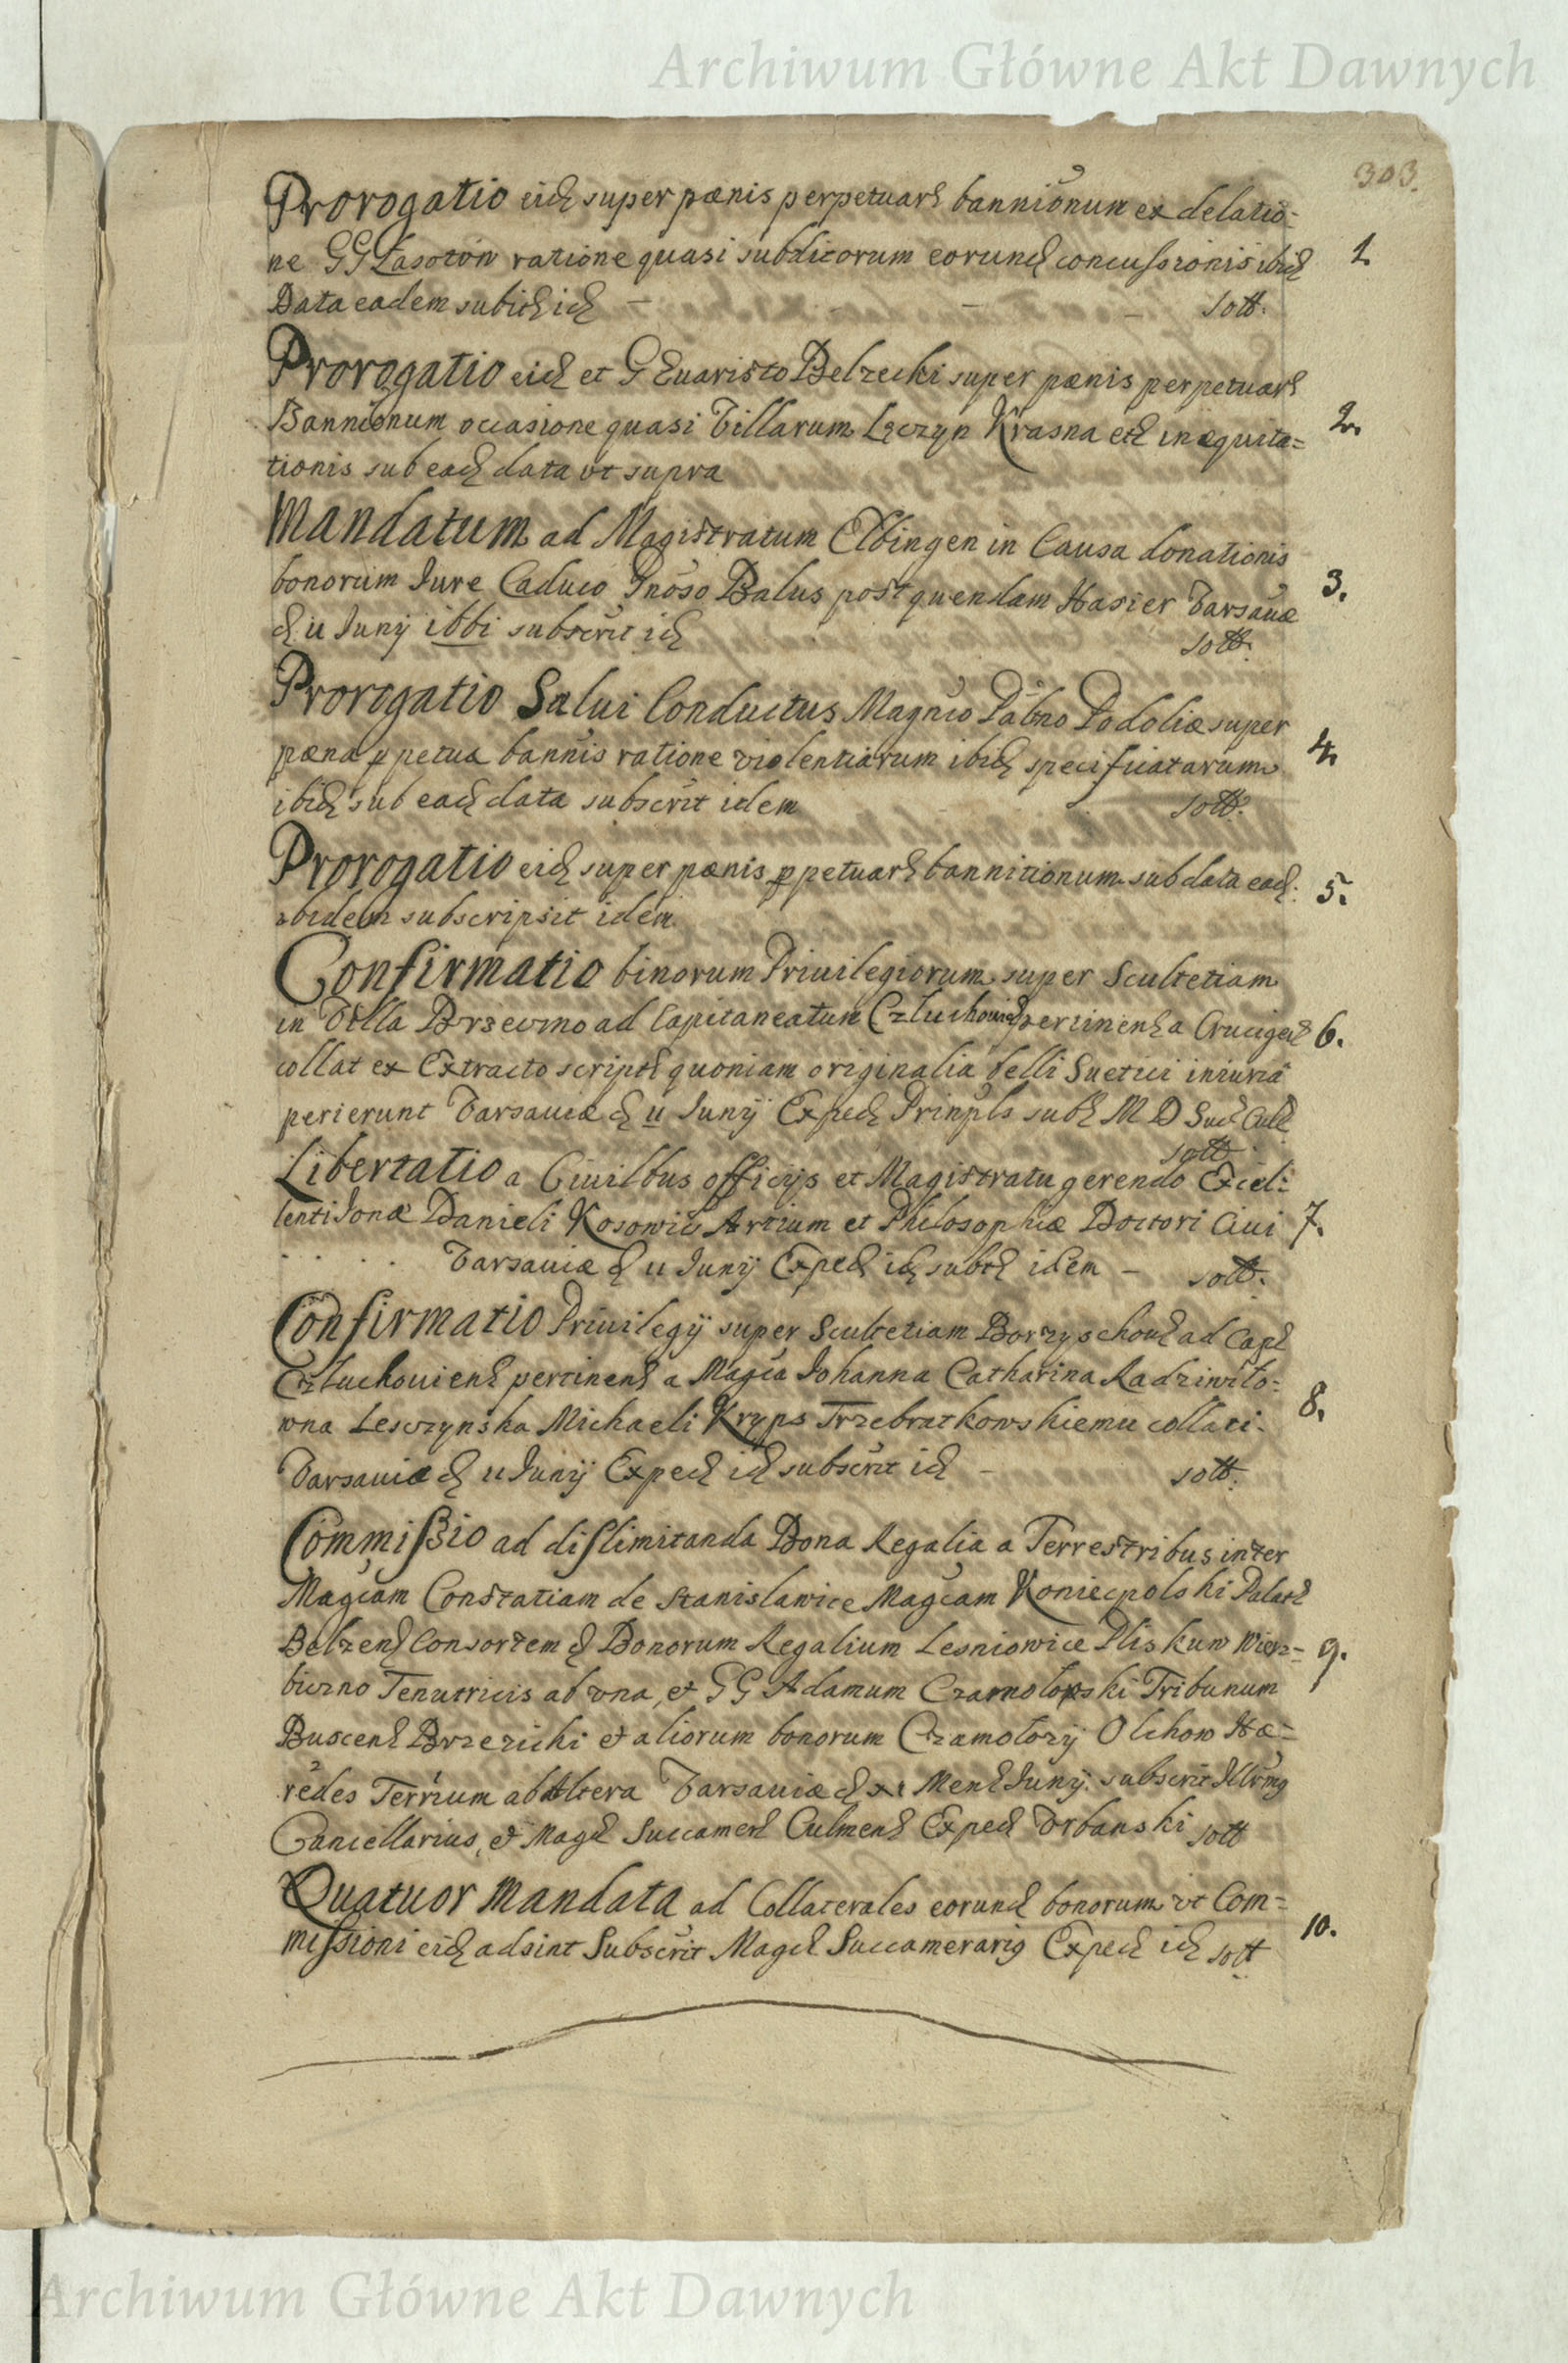 Archiwum Główne Akt Dawnych
303.
Prorogatio eid super pænis perpetuar bannionum ex delatio-
ne GG Łasotōn ratione quasi subditorum eorund concussionis ibid 1.
Data eadem subid id – – – sott.
Prorogatio eid et G Euaristo Belzecki super pænis perpetuar
Bannionum occasione quasi Villarum Lęczyn Krasna etc inequita= 2.
tionis sub ead data vt supra
Mandatum ad Magistratum Elbingen in Causa donationis
bonorum Jure Caduco Gnoso Balus post quendam Hasier Varsauæ 3.
d 11 Junij ibbi subscrit id sott.
Prorogatio Salui Conductus Magnco Palno Podoliæ super
pæna ppetuæ bannis ratione violentiarum ibid specificatarum 4.
ibid sub ead data subscrit idem sott.
Prorogatio eid super pænis ppetuar bannitionum sub data ead. 5.
ibidem subscripsit idem.
Confirmatio binorum Priuilegiorum super Scultetiam
in Villa Brzeczno ad Capitaneatum Człuchouien pertinen a Cruciger 6.
collat ex Extracto script quoniam originalia belli Suetici iniuria
perierunt Varsauiæ d 11 Junij Exped Prinpls sub M D Suc Cul
sott
Libertatio a Ciuilbus officijs et Magistratu gerendo Excel:
lenti Jonæ Danieli Kosowic Artium et Philosophiæ Doctori Ciui 7.
. . . . Varsauiæ d 11 Junij Exped id subs idem – sott.
Confirmatio Priuilegij super Scultetiam Borzyschow ad Cap
Człuchouien pertinen a Magca Johanna Catharina Radziwiło- 8.
wna Lesczynska Michaeli Kryps Trzebiatkowskiemu collati.
Varsauiæ d 11 Junij Exped id subscrit id – sott.
Commissio ad dislimitanda Bona Regalia a Terrestribus inter
Magcam Constatiam de Stanislawice Magcam Koniecpolski Palat
Belzen Consortem d Bonorum Regalium Lesniowice Pliskuw Wierz= 9.
biczno Tenutricis ab vna, et GG Adamum Czarnolozski Tribunum
Buscen Brzezicki et aliorum bonorum Czamołozy Olchow Hæ=
redes Terrium ab Altera Varsauiæ d xi Men Junij. subscrit Illrmg
Cancellarius, et Mag Succamer Culmen Exped Vrbanski sott
Quatuor Mandata ad Collaterales eorund bonorum vt Com=
missioni eid adsint Subscrit Mag Succamerarig Exped id sott 10.
Archiwum Główne Akt Dawnych